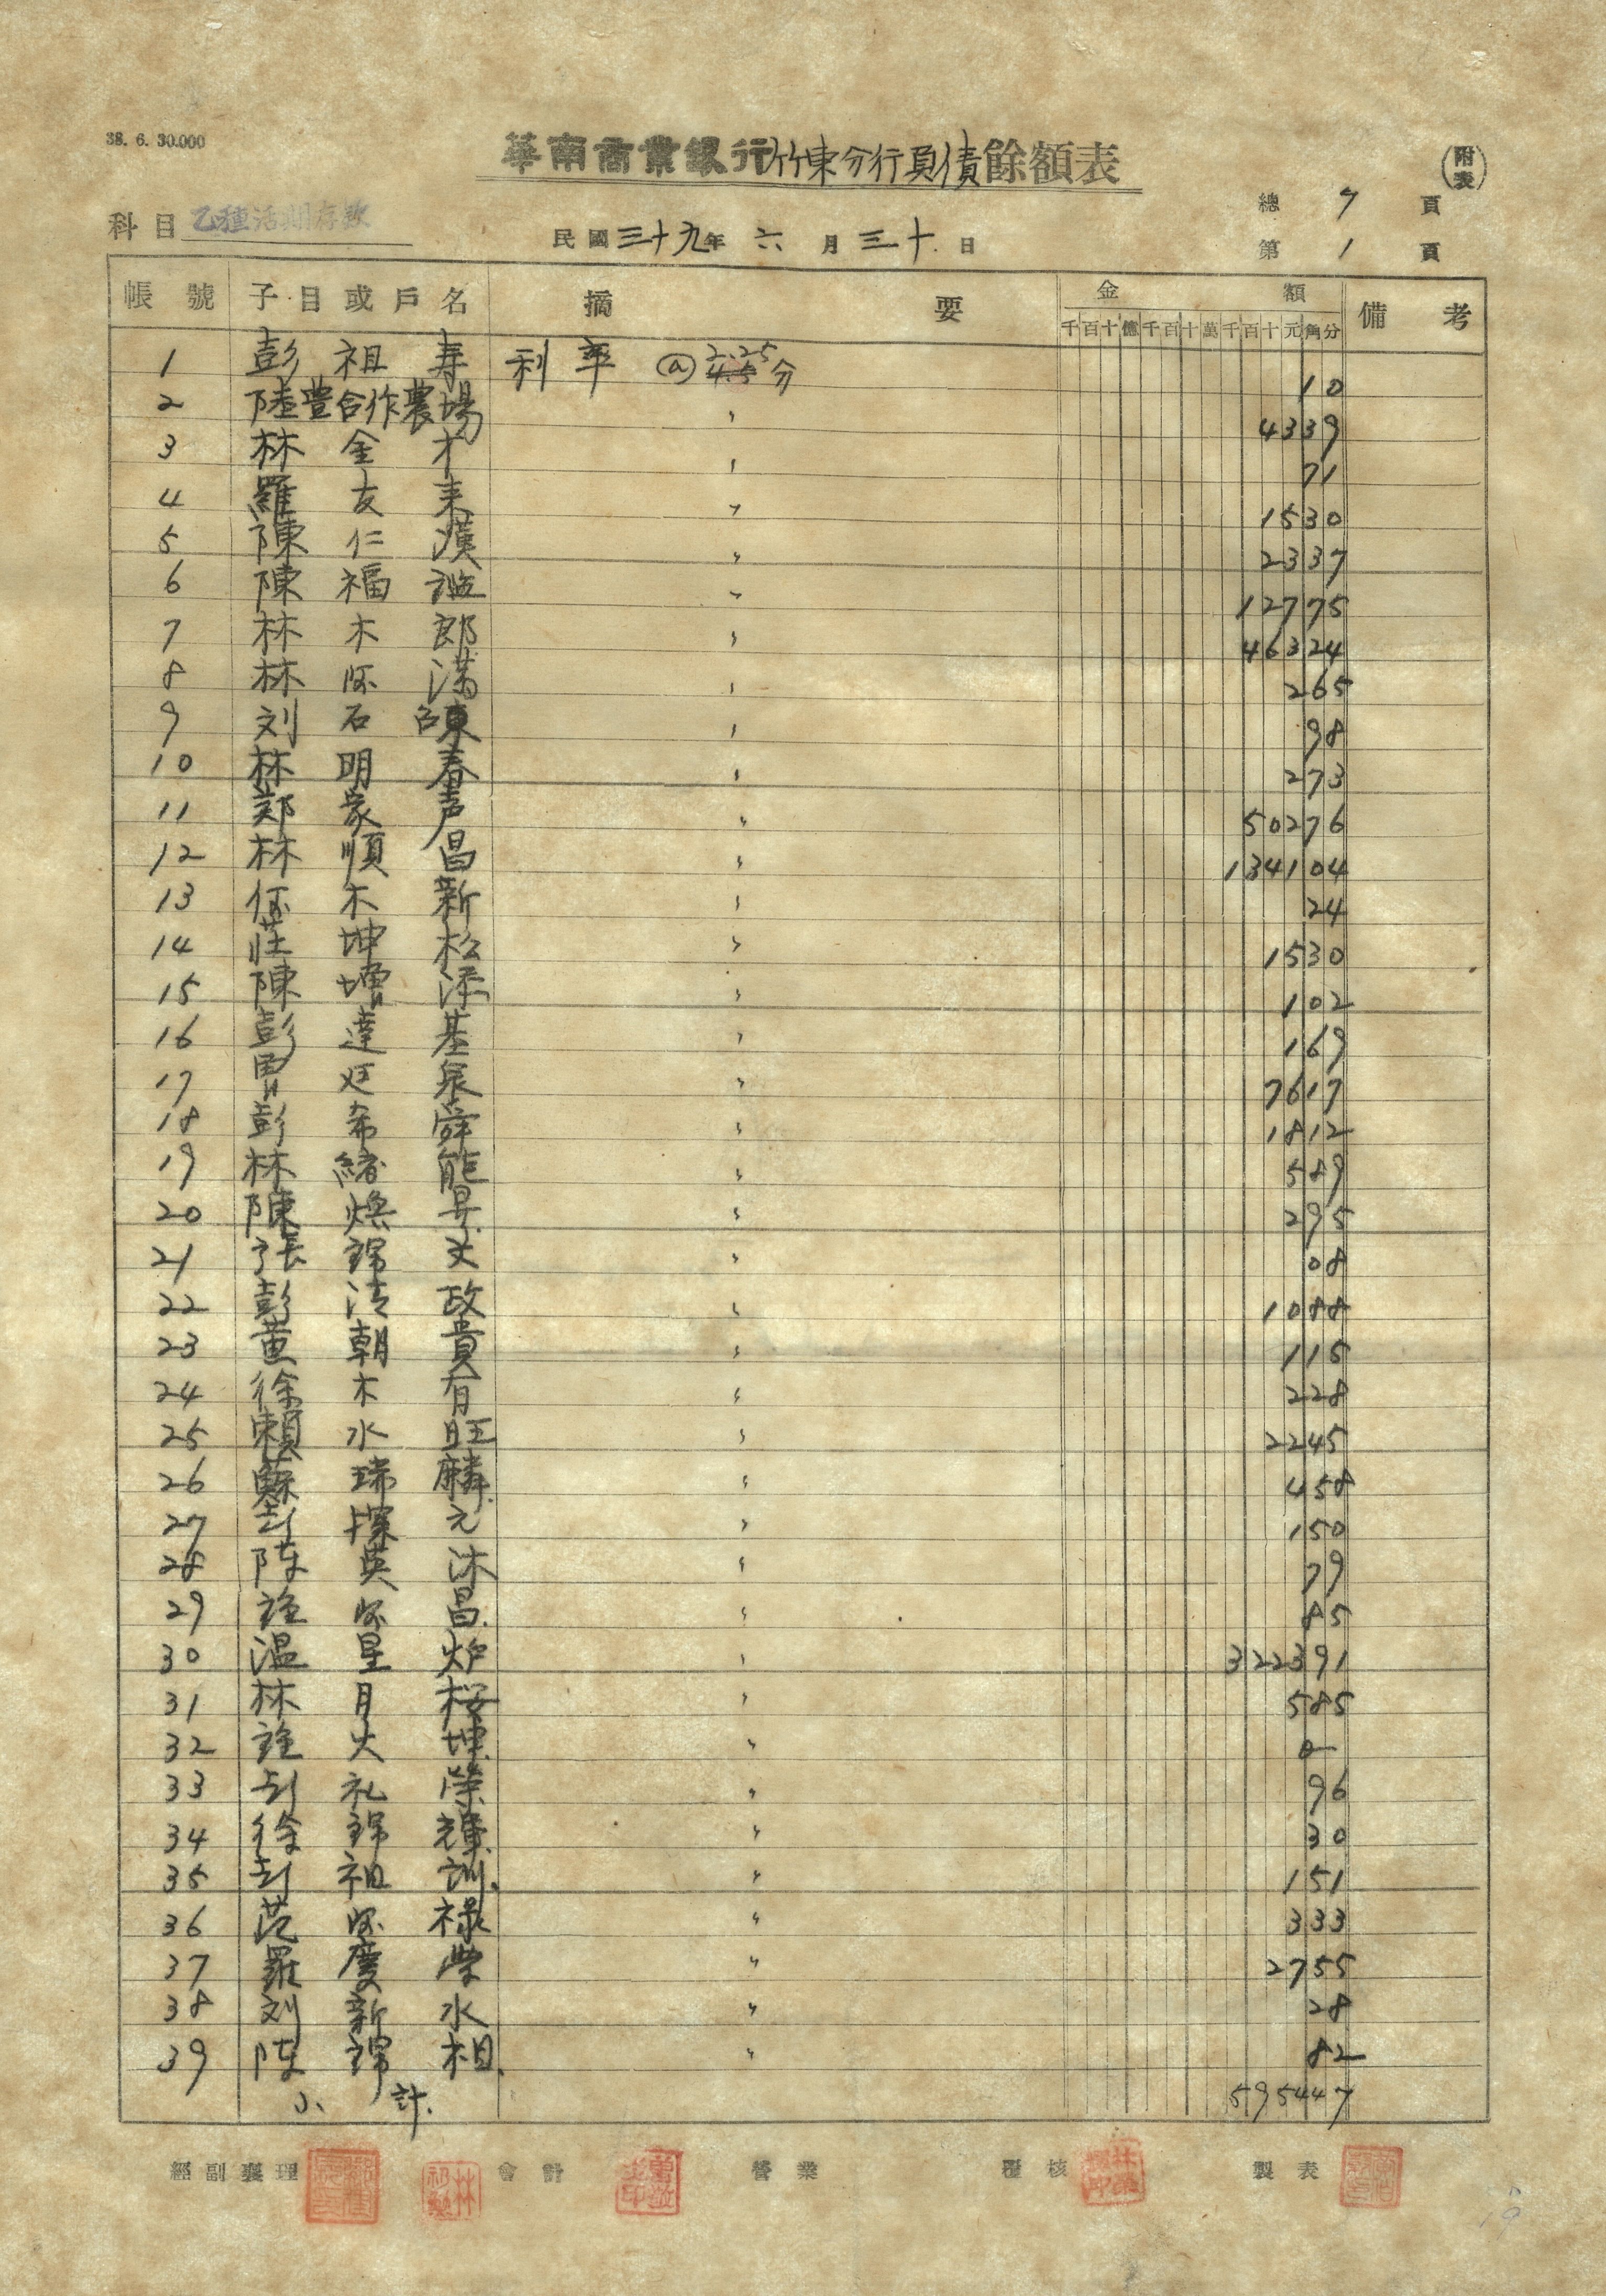 38. 6. 30.000
華南商業銀行竹東分行負債餘額表
(附表)
總 7 頁
科目 乙種活期存款
民國三十九年 六 月 三十 日
第 1 頁
帳號 子目或戶名 摘要 金額 備考
千百十億千百十萬千百十元角分
1 彭祖寿 利率 @ 2.25 分 10
2 陸豊合作農場 〃 4339
3 林金才 〃 71
4 羅友来 〃 1530
5 陳仁漢 〃 2337
6 陳福 〃 12775
7 林木郎 〃 46324
8 林 满 〃 265
9 刘石 〃 98
10 林明春 〃 273
11 鄭家声 〃 50276
12 林順昌 〃 134104
13 木新 〃 24
14 莊坤松 〃 1530
15 陳增添 〃 102
16 彭達基 〃 169
17 曾廷泉 〃 7617
18 彭希舜 〃 1812
19 林緒能 〃 589
20 陳煥昇 〃 295
21 張錦文 〃 08
22 彭清政 〃 1088
23 黄朝貴 〃 115
24 徐木有 〃 228
25 賴水旺 〃 2245
26 蘇瑞麟 〃 458
27 彭 元 〃 150
28 陈英沐 〃 79
29 昌 〃 85
30 温星炉 〃 322391
31 林月桜 〃 585
32 火坤 〃 0
33 彭礼榮 〃 96
34 徐錦輝 〃 30
35 彭祖訓 〃 151
36 范 禄 〃 333
37 羅慶榮 〃 2755
38 刘新水 〃 28
39 陈錦相 〃 82
小計 595447
經副襄理 會計 營業 覆核 製表